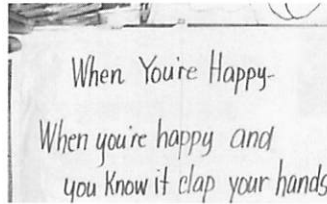 When You're Happy-
When you're happy and
you Know it clap your hands